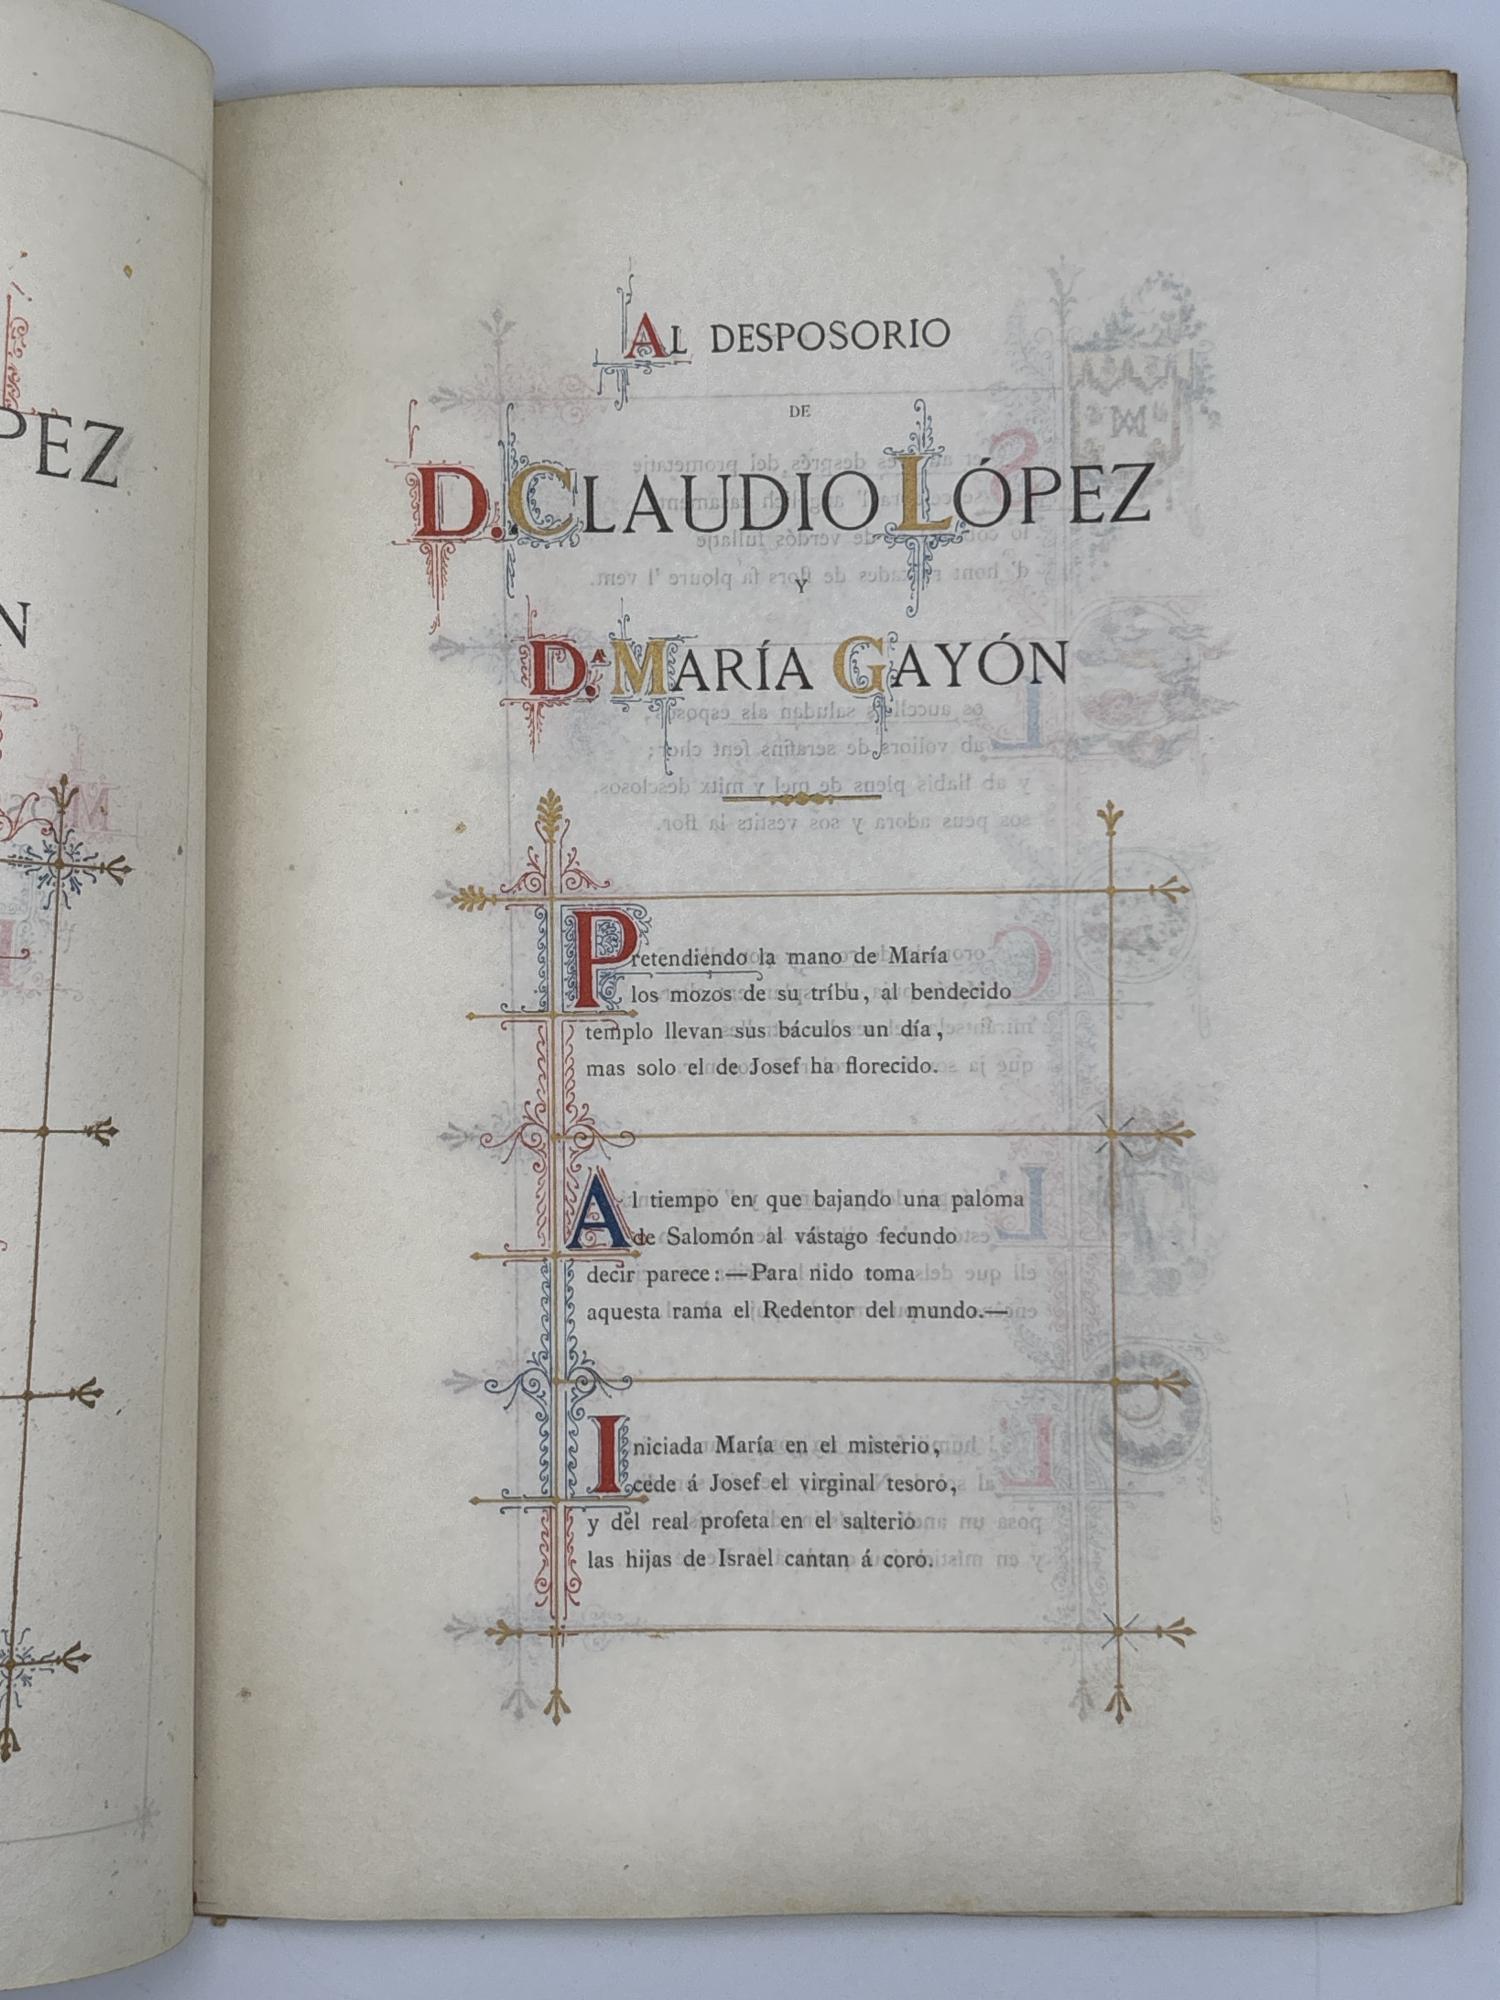 PEZ
N
AL DESPOSORIO
DE
D. CLAUDIO LÓPEZ
Y
D.ª MARÍA GAYÓN
Pretendiendo la mano de María
los mozos de su tríbu, al bendecido
templo llevan sus báculos un día,
mas solo el de Josef ha florecido.
Al tiempo en que bajando una paloma
de Salomón al vástago fecundo
decir parece: — Para nido toma
aquesta rama el Redentor del mundo.—
Iniciada María en el misterio,
cede á Josef el virginal tesoro,
y del real profeta en el salterio
las hijas de Israel cantan á coro.